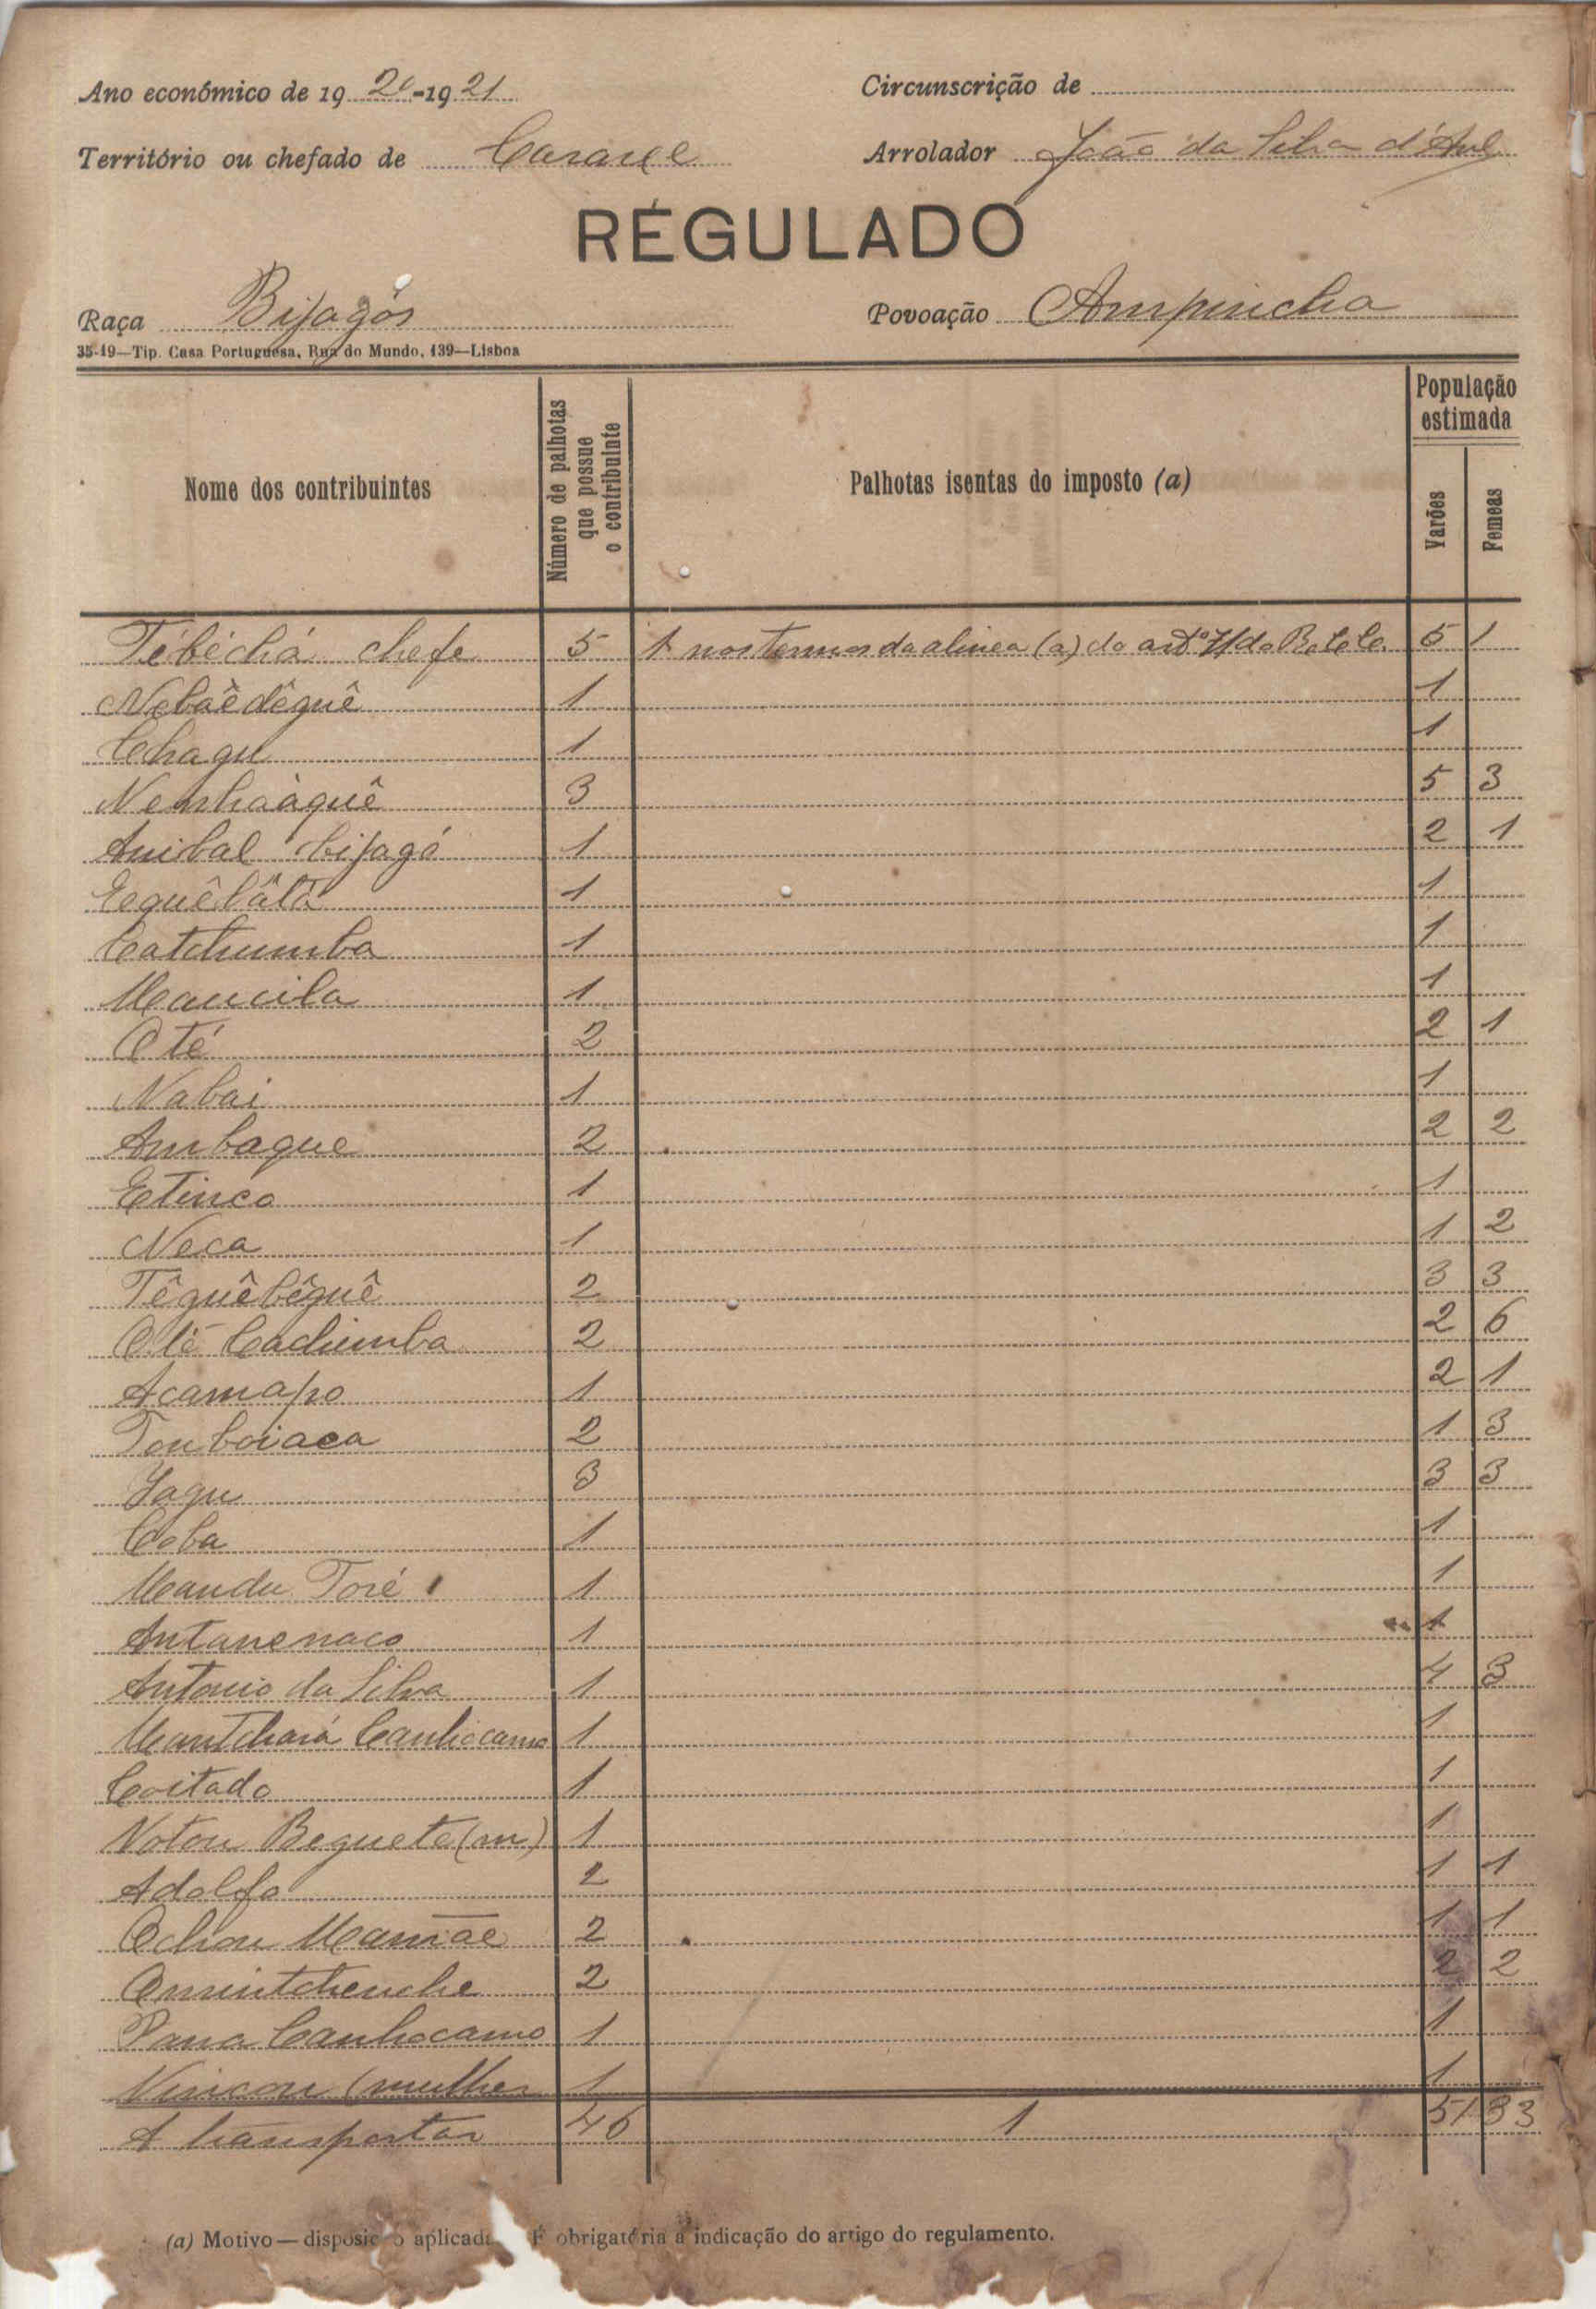 Ano económico de 1920-1921
Circunscrição de
Território ou chefado de Cararve
Arrolador João da Silva d'
REGULADO
Raça Bijagós
Povoação Ampincha
35-19—Tip. Casa Portuguesa, Rua do Mundo, 139—Lisboa
Nome dos contribuintes
Número de palhotas que possue o contribuinte
Palhotas isentas do imposto (a)
População estimada
Varões
Femeas
Tébéchá chefe 5 1 nos termos da alinea (a) do artº do 5 1
Nobàêdêguê 1 1
Chagu 1 1
Nenhaàquê 3 5 3
Anibal bijagó 1 2 1
1 1
Catchumba 1 1
Mancila 1 1
Oté 2 2 1
Nabai 1 1
Ambaque 2 2 2
Etinco 1 1
Neca 1 1 2
Têquêbêguê 2 3 3
Oté Cachumba 2 2 6
Acamapo 1 2 1
Tonboiaca 2 1 3
Jagu 3 3 3
Coba 1 1
Mandu Toré 1 1
Antanenaco 1 1
Antonio da Silva 1 4 3
Mantchará Canhocamo 1 1
Coitado 1 1
Noton Beguete (m) 1 1
Adolfo 2 1 1
Ochou Mamãe 2 1 1
Omintchenche 2 2 2
Pana Canhocamo 1 1
Nincou (mulher 1 1
A transportar 46 1 51 33
(a) Motivo — aplicada É obrigatória a indicação do artigo do regulamento.